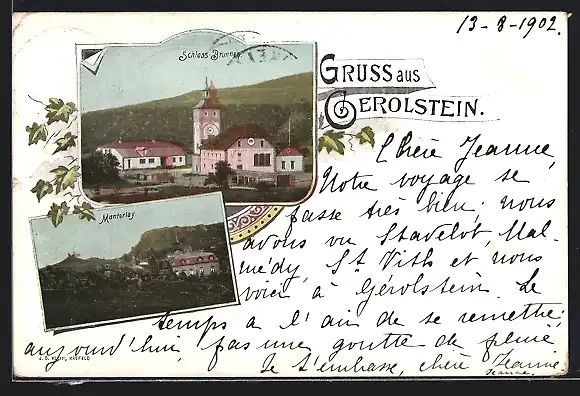 13-8-1902.
Schloss-Brunnen
GRUSS AUS
GEROLSTEIN.
Chère Jeanne,
Notre voyage se
passe très bien; nous
avons vu Stavelot, Mal-
médy, St. Vith et nous
voici à Gérolstein. Le
temps a l'air de se remettre;
aujourd'hui pas une goutte de pluie
Je t'embrasse, chère Jeanne
Jeanne.
Munterley
KREFELD